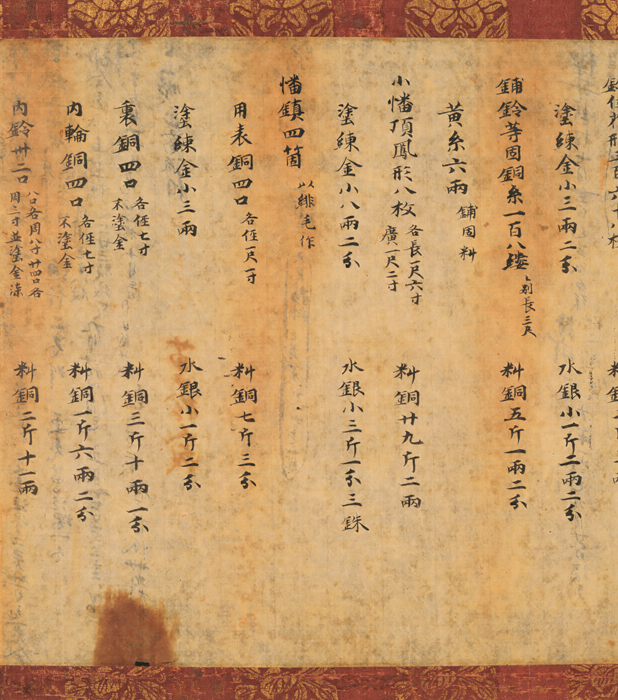 塗練金小三兩二分 水銀小一斤二兩二分
鋪鈴等固銅糸一百八縷 別長三尺 料銅五斤一兩二分
黄糸六兩 鋪固料
小幡頂鳳形八枚 各長一尺六寸 廣一尺二寸 料銅廿九斤二兩
塗練金小八兩二分 水銀小三斤一分三銖
幡鎮四箇 以緋毛作
用表銅四口 各徑一尺一寸 料銅七斤三分
塗練金小三兩 水銀小一斤二分
裏銅四口 各徑七寸 不塗金 料銅三斤十兩一分
內輪銅四口 各徑七寸 不塗金 料銅一斤六兩二分
內鈴卅二口 八口各周八寸廿四口各周三寸並塗金漆 料銅二斤十一兩